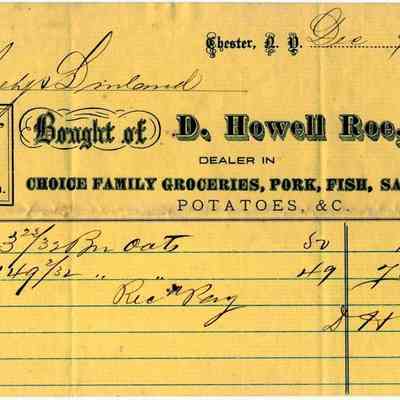 Chester, N. Y. Dec
Bought of D. Howell Roe,
DEALER IN
CHOICE FAMILY GROCERIES, PORK, FISH, SA
POTATOES, &C.
3 23/32 Bu Oats 50
49 2/32 " " 49 7
Rec'd Pay
D H